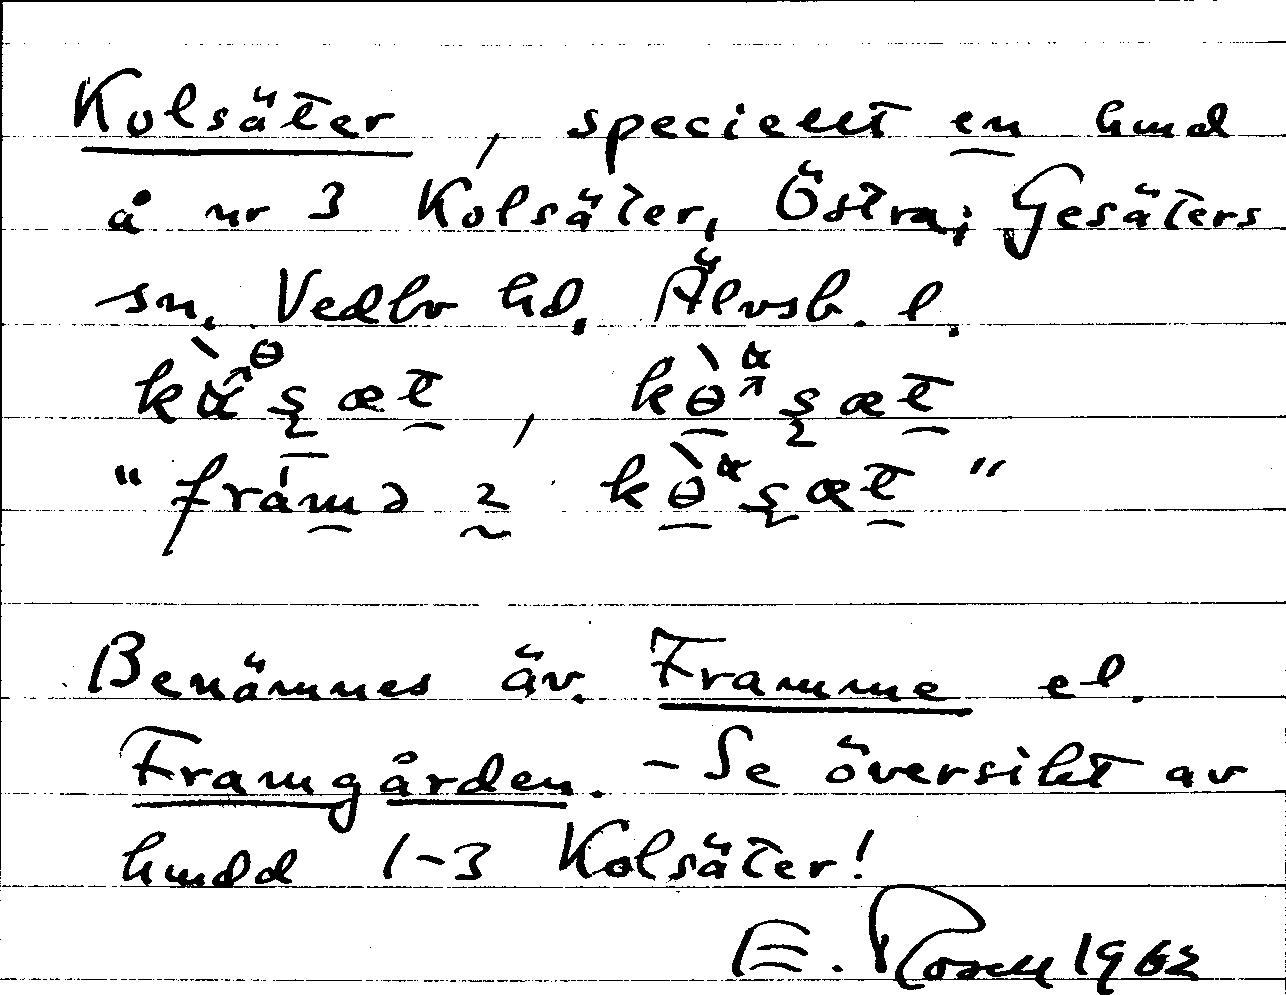 Kolsäter, speciellt en hmd
å nr 3 Kolsäter, Östra; Gesäters
sn. Vedbo hd. Älvsb. l.
"framə
Benämnes äv. Framme el.
Framgården. - Se översikt av
hmdd 1-3 Kolsäter!
E. Rosell 1962